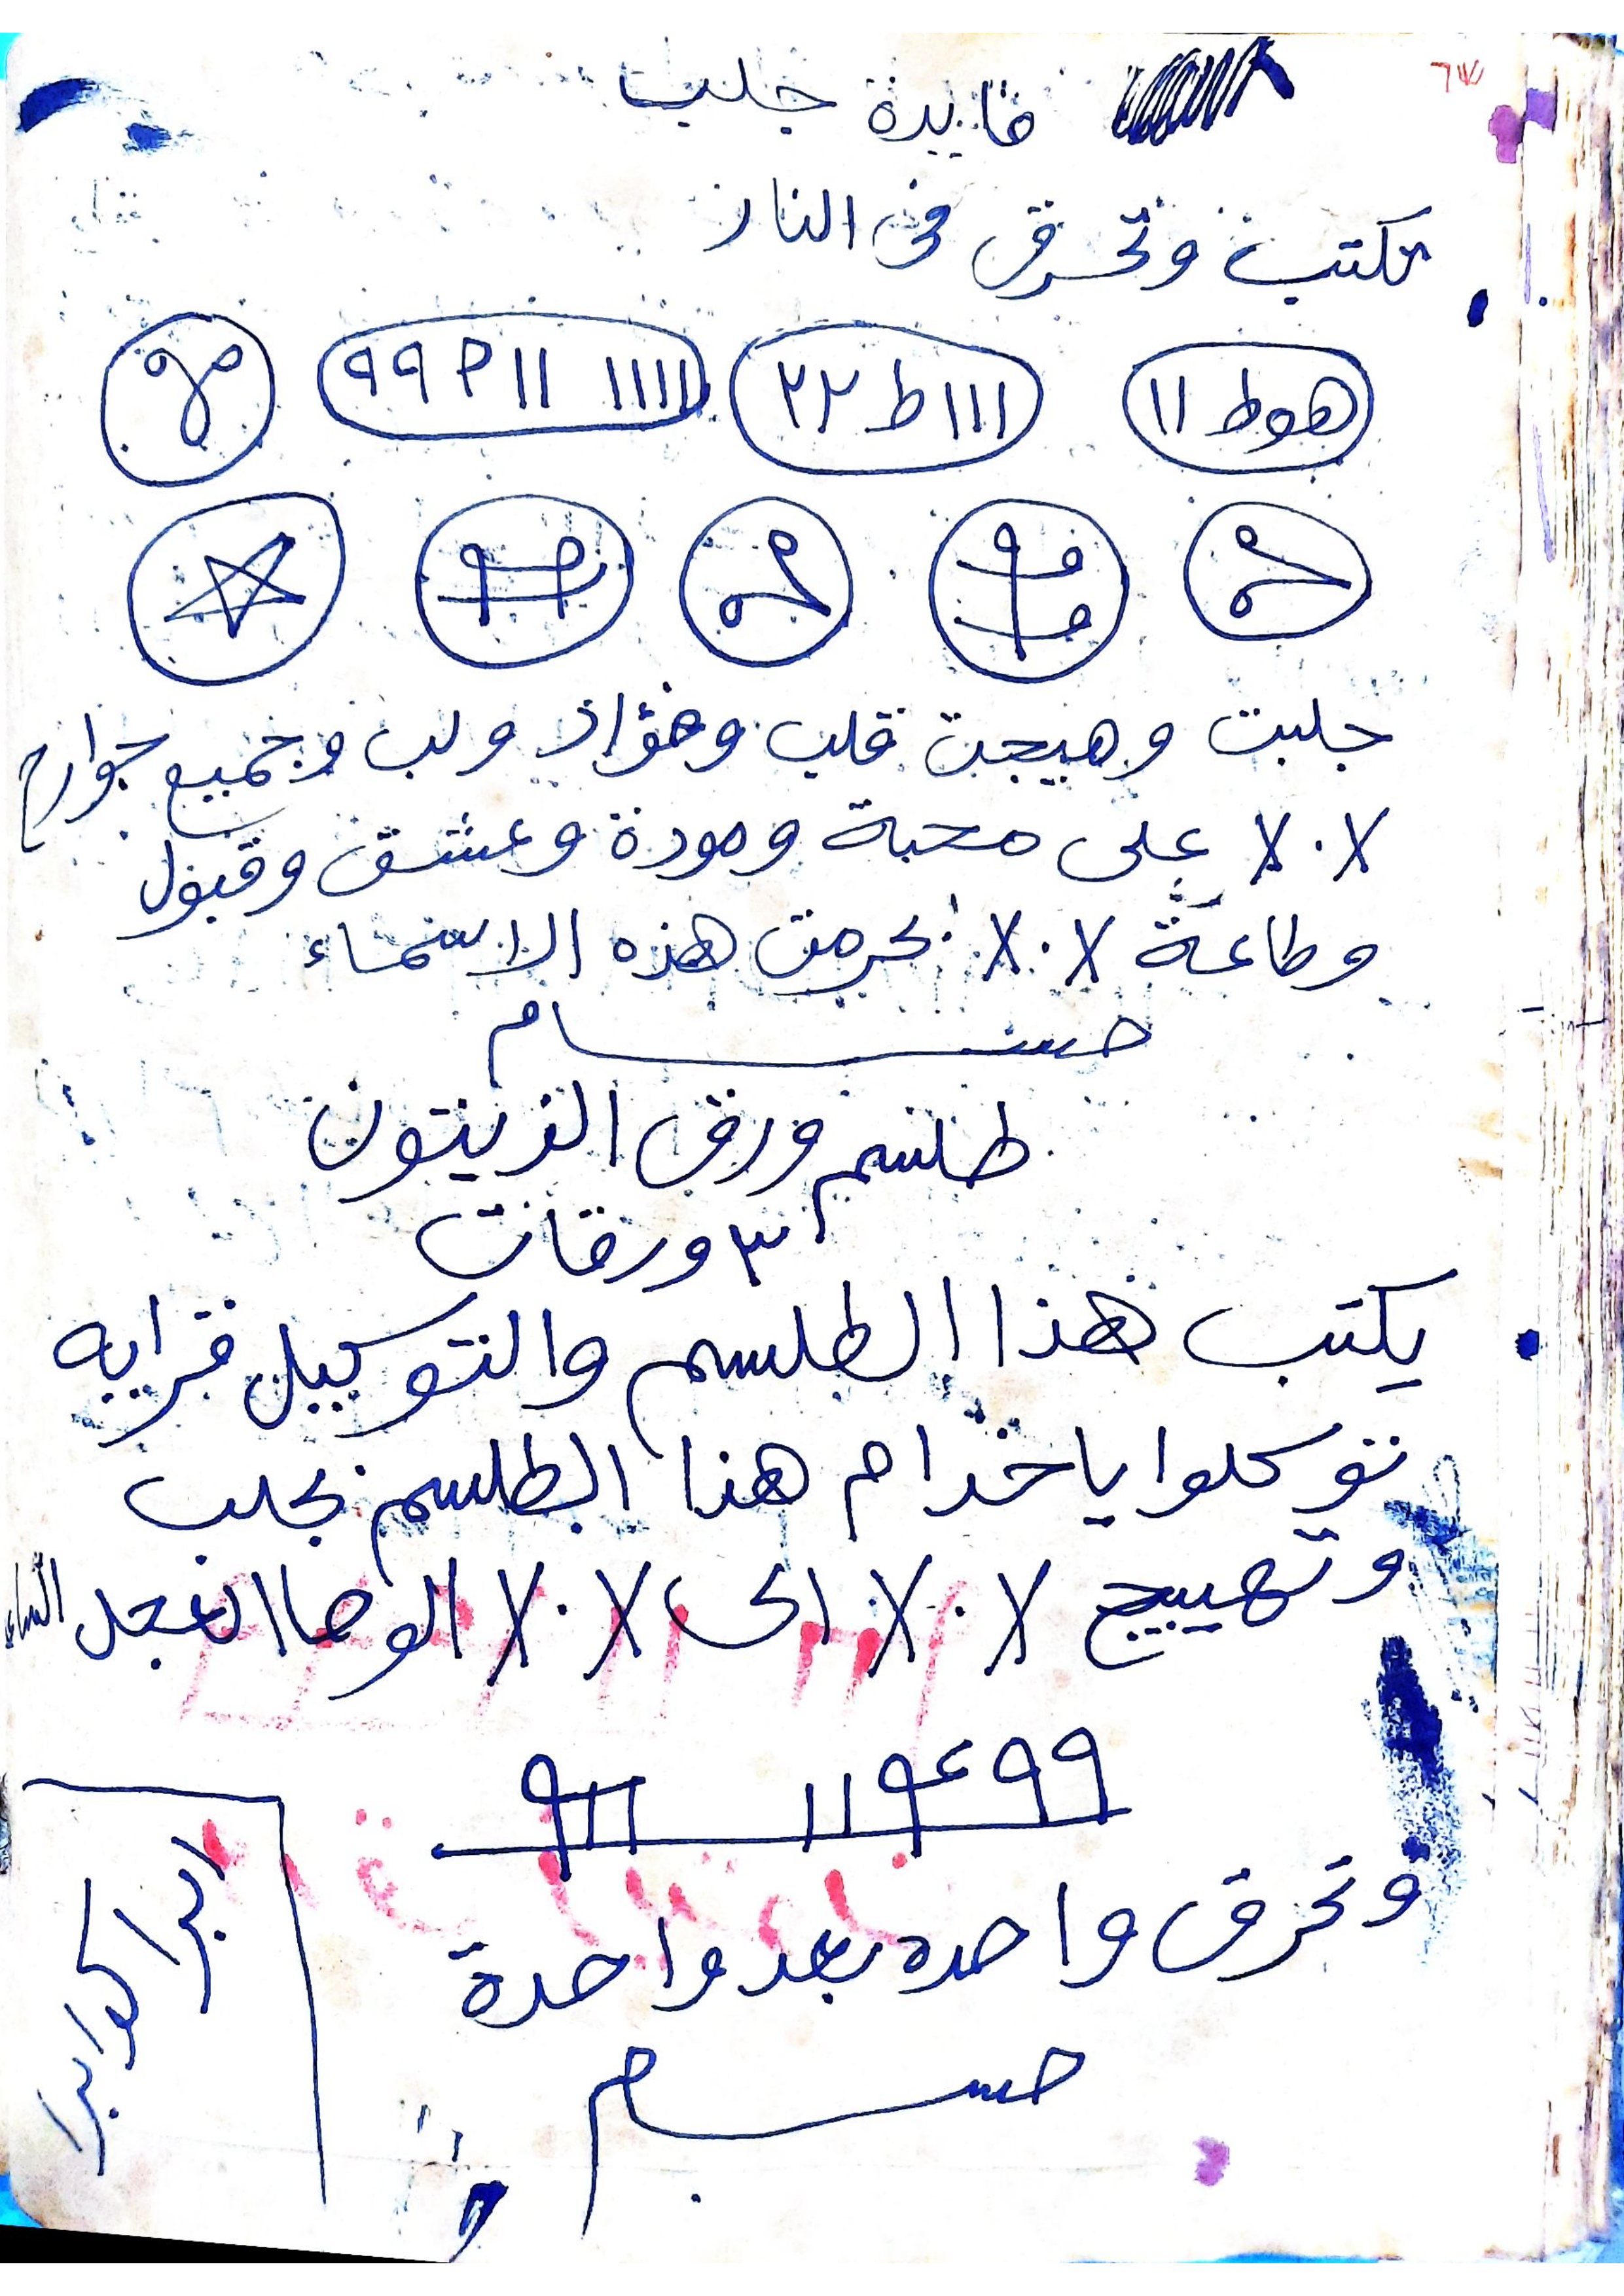 فايدة جلب
تكتب وتحرق في النار
هوط ١١ ١١١ ط ٢٢ ١١١١ ١١ ٩٩
جلبت وهيجت قلب وفؤاد ولب وجميع جوارح
X.X على محبة ومودة وعشق وقبول
وطاعة X.X بحرمت هذه الاسماء
حسام
طلسم ورق الزيتون
٣ ورقات
يكتب هذا الطلسم والتوكيل قرايه
توكلوا ياخدام هذا الطلسم بجلب
وتهييج X.X الى X.X الوحا العجل
٩٩٤٩١١ ٩١١
وتحرق واحده بعد واحدة
حسام